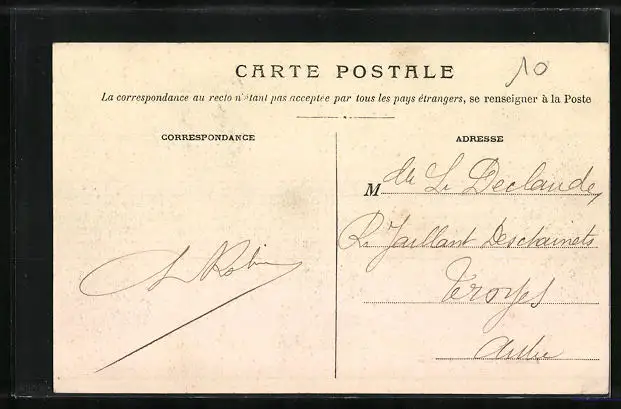 10
CARTE POSTALE
La correspondance au recto n'étant pas acceptée par tous les pays étrangers, se renseigner à la Poste
CORRESPONDANCE
ADRESSE
M
R. Jaillant Deschainets
Troyes
Aube
Robin